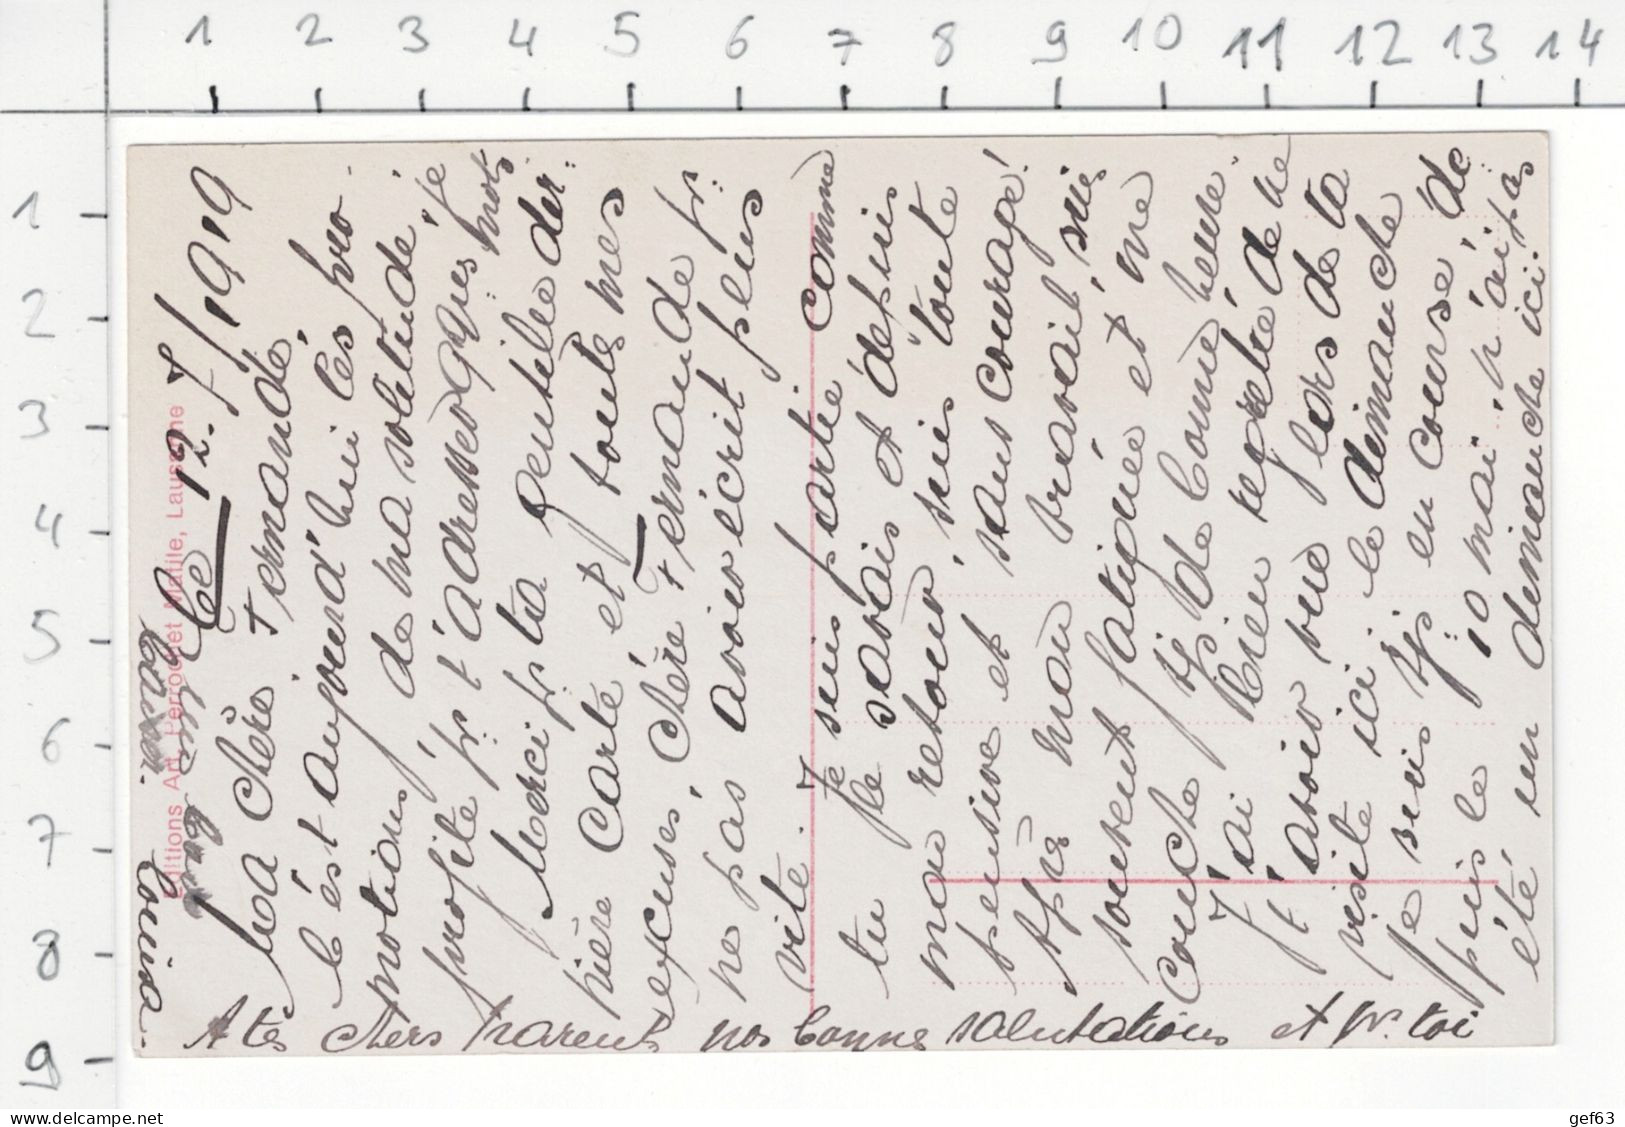 1 2 3 4 5 6 7 8 9 10 11 12 13 14
1
2
3
4
5
6
7
8
9
Ce 12. 7/1919
Ma chère Fernande,
C'est aujourd'hui les pro-
motions, de ma solitude, je
profite pr. t'adresser qques mots
Merci pr ta gentille der-
nière carte et toutes mes
excuses, chère Fernande pr.
ne pas avoir écrit plus
vite. Je suis partie comme
tu le savais et depuis
mon retour, suis toute
pensive et sans courage!
Après mon travail, suis
souvent fatiguée et me
couche de bonne heure.
J'ai bien regretté de ne
t'avoir vue lors de ta
visite ici le dimanche
je suis en course, de-
puis le 10 mai, n'ai pas
été un dimanche ici.
A tes chers parents nos bonnes salutations et pr. toi
Louisa.
Editions Art. Perrochet Matile, Lausanne
www.delcampe.net
gef63